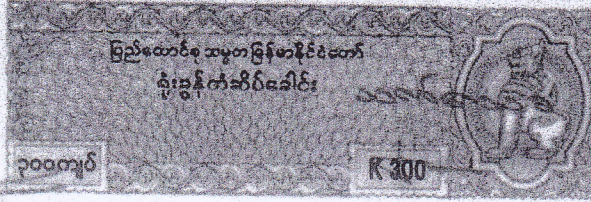 ပြည်ထောင်စု သမ္မတ မြန်မာနိုင်ငံတော်
ရုံးခွန်တံဆိပ်ခေါင်း
၃၀၀ကျပ်
K 300